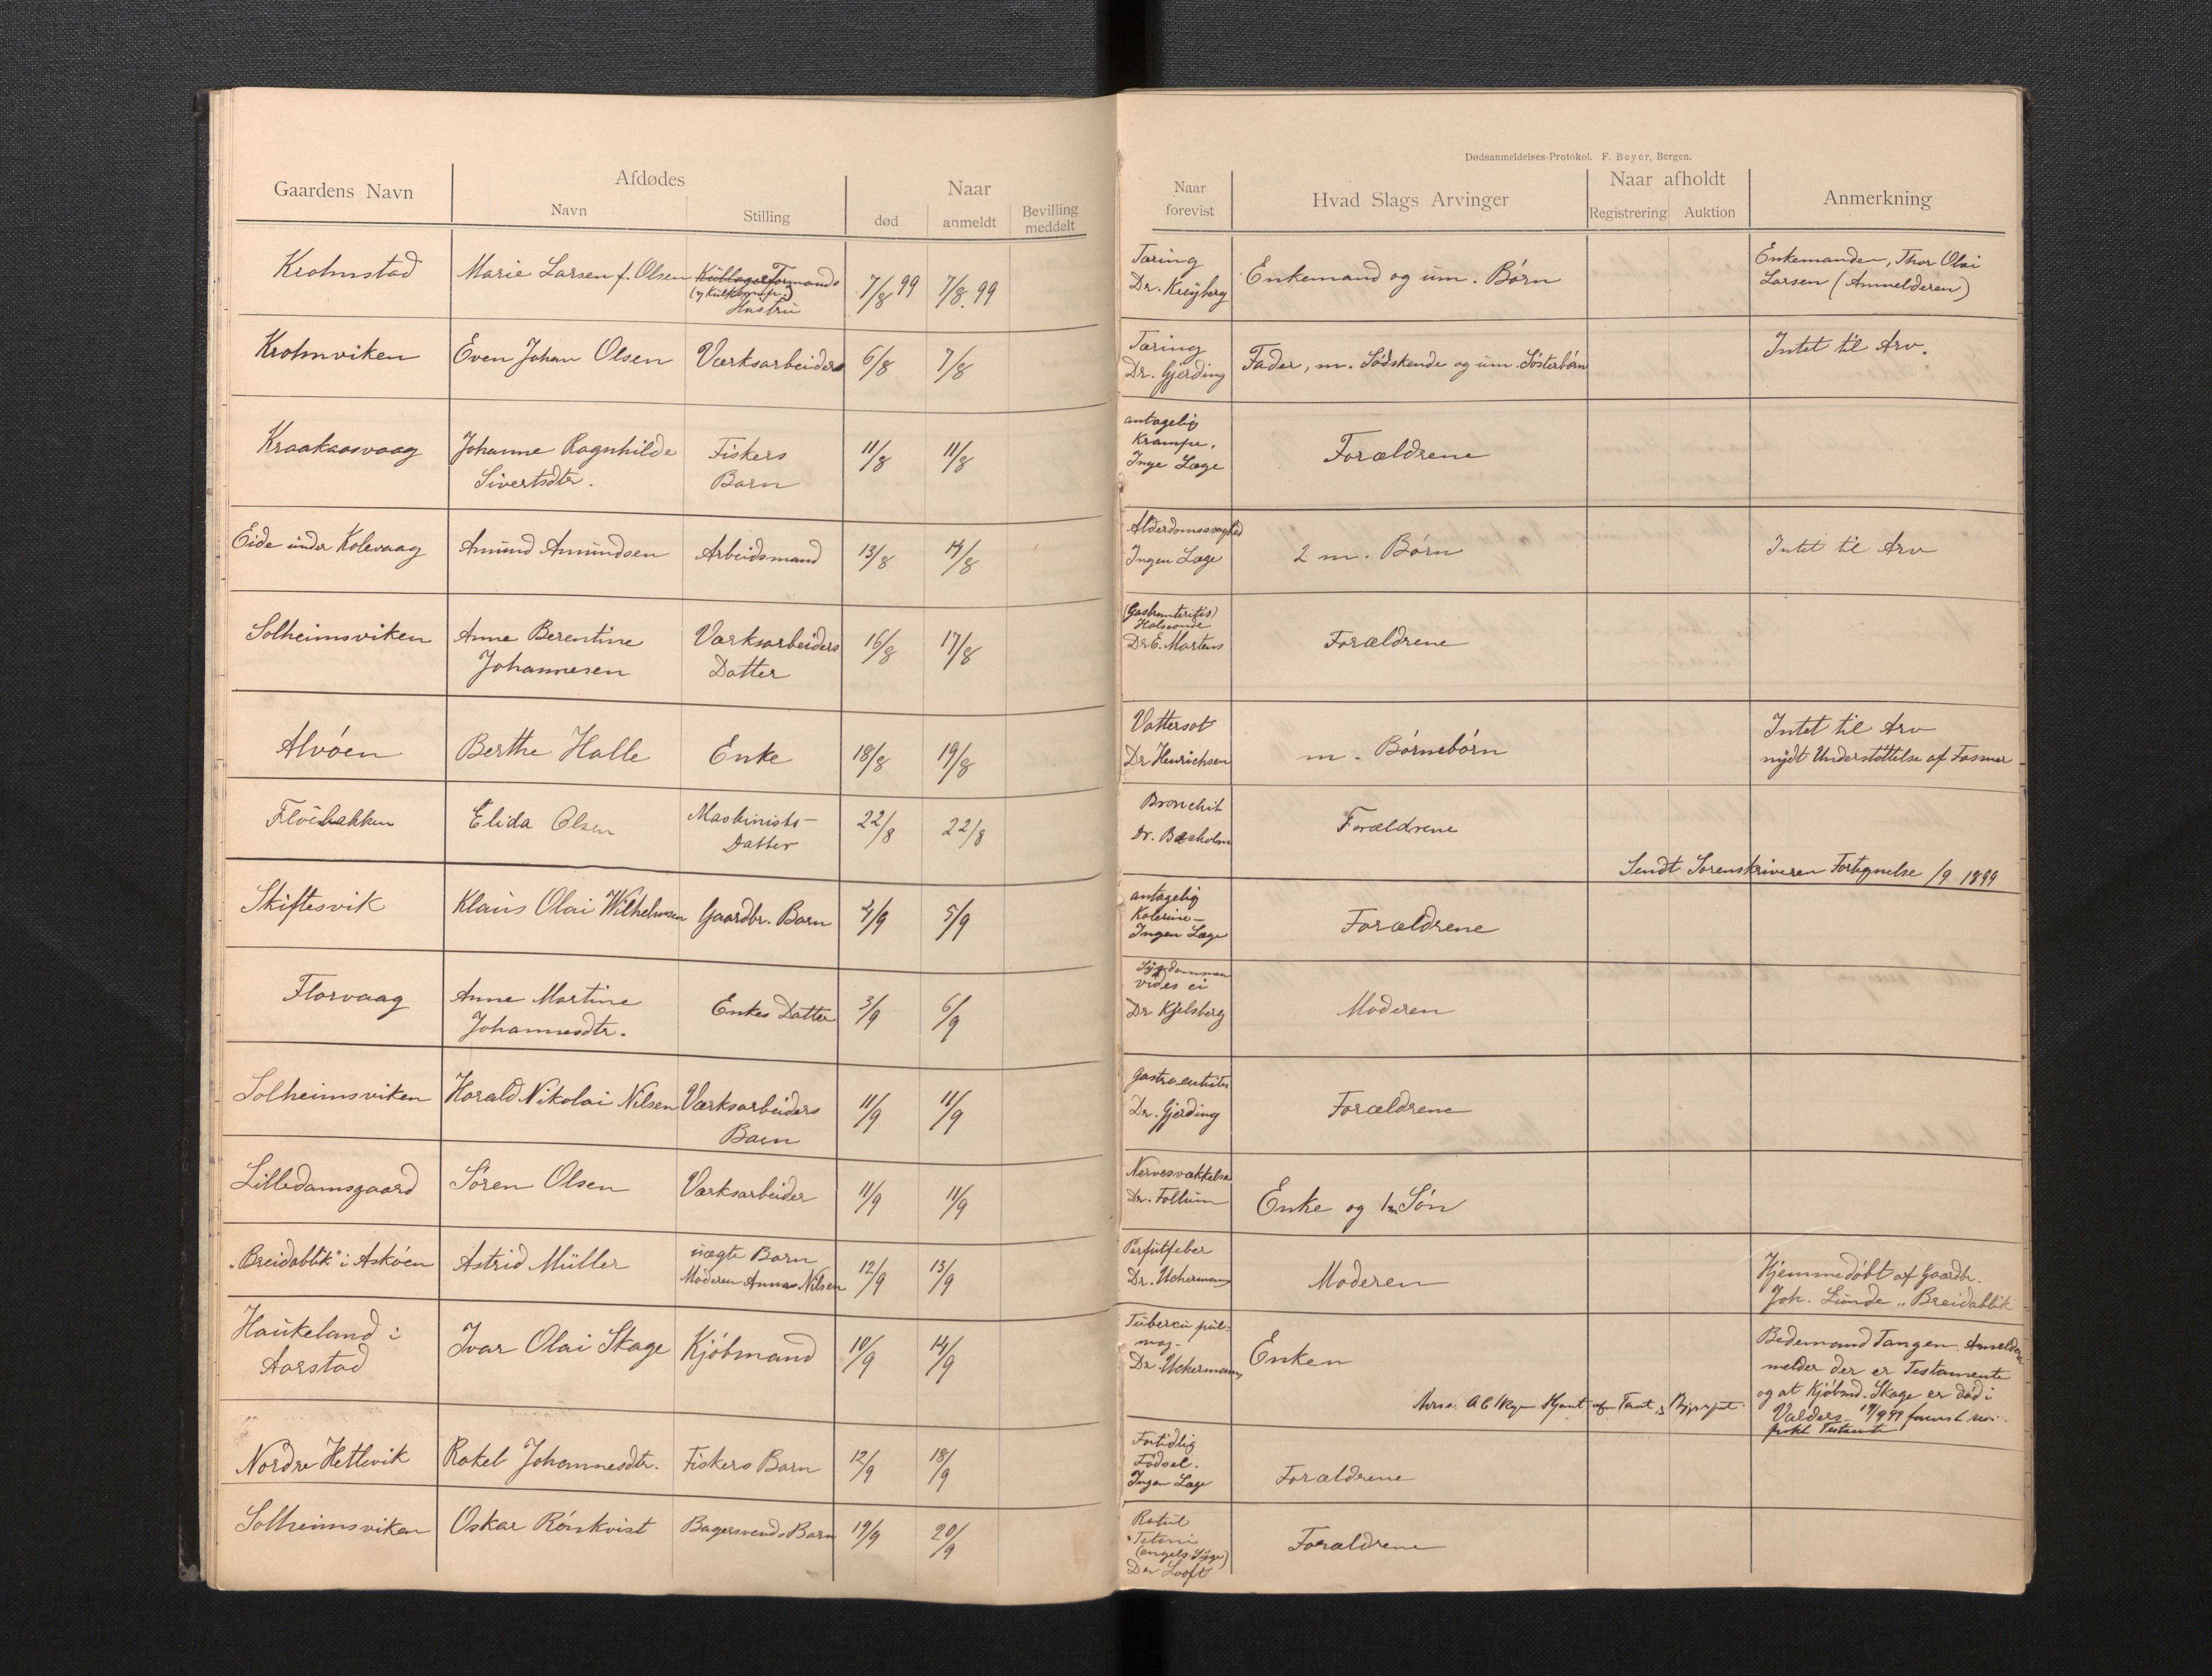 Dødsanmeldelses-Protokol. F. Beyer, Bergen.
Gaardens Navn
Afdødes
Navn
Stilling
Naar
død
anmeldt
Bevilling
meddelt
Naar
forevist
Hvad Slags Arvinger
Naar afholdt
Registrering
Auktion
Anmerkning
Krohnstad
Marie Larsen f. Olsen
Formands
Hustru
7/8 99
7/8. 99
Tæring
Dr. Kreyberg
Enkemand og um. Børn
Enkemanden, Thor Olai
Larsen (Anmelderen)
Krohnviken
Even Johan Olsen
Værksarbeider
6/8
7/8
Tæring
Dr. Gjerding
Fader, m. Sødskende og um. Søsterbørn
Intet til Arv.
Kraakaasvaag
Johanne Ragnhilde
Sivertsdtr.
Fiskers
Barn
11/8
11/8
antagelig
Krampe.
Inge Læge
Forældrene
Eide under Kolevaag
Amund Amundsen
Arbeidsmand
13/8
14/8
Alderdomssvaghed
Ingen Læge
2 m. Børn
Intet til Arv
Solheimsviken
Anne Berentine
Johannesen
Værksarbeiders
Datter
16/8
17/8
Dr E. Martens
Forældrene
Alvøen
Berthe Halle
Enke
18/8
19/8
Vattersot
Dr Henrichsen
m. Børnebørn
Intet til Arv
nydt Understøttelse af Fasmer
Fløibakken
Elida Olsen
Maskinists-
Datter
22/8
22/8
Bronchit
Dr.
Forældrene
Sendt Sorenskriveren Fortegnelse /9 1899
Skiftesvik
Klaus Olai Wilhelmsen
Gaardbr. Barn
4/9
5/9
antagelig
Kolerine-
Ingen Læge
Forældrene
Florvaag
Anne Martine
Johannesdtr.
Enkes Datter
3/9
6/9
Sygdommen
vides ei
Dr Kjelsberg
Moderen
Solheimsviken
Harald Nikolai Nilsen
Værksarbeiders
Barn
11/9
11/9
Dr. Gjerding
Forældrene
Lilledamsgaard
Søren Olsen
Værksarbeider
11/9
11/9
Nervesvækkelse
Dr. Follum
Enke og 1 m Søn
"Breidablik" i Askøen
Astrid Müller
uægte Barn
Moderen Anna Nilsen
12/9
13/9
Dr. Uchermann
Moderen
Hjemmedøbt af Gaardbr.
Joh. Lunde "Breidablik
Haukeland i
Aarstad
Ivar Olai Skage
Kjøbmand
10/9
14/9
Dr. Uckermann
Enken
Bedemand Tangen Anmelder
melder der er Testamente
og at Kjøbmd. Skage er død i
Valders
Nordre Hetlevik
Rakel Johannesdtr.
Fiskers Barn
12/9
18/9
Fortidlig
Fødsel.
Ingen Læge
Forældrene
Solheimsviken
Oskar Rönkvist
Bagersvends Barn
19/9
20/9
(engelsk Syge)
Looft
Forældrene